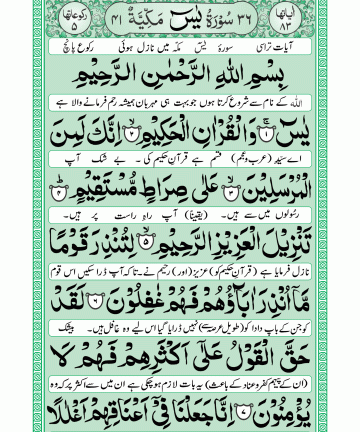 آیاتها ٨٣ ٣٦ سُوْرَةُ يٰسٓ مَكِّيَّةٌ ٤١ رکوعاتها ٥
آیات تراسی سورۂ یٰس مکہ میں نازل ہوئی رکوع پانچ
بِسْمِ اللّٰهِ الرَّحْمٰنِ الرَّحِيْمِ
اللہ کے نام سے شروع کرتا ہوں جو بہت ہی مہربان ہمیشہ رحم فرمانے والا ہے
يٰسٓ ۚ﴿١﴾ وَالْقُرْاٰنِ الْحَكِيْمِ ۙ﴿٢﴾ اِنَّكَ لَمِنَ
اے سیّد (عرب و عجم) قسم ہے قرآن حکیم کی۔ بے شک آپ
الْمُرْسَلِيْنَ ۙ﴿٣﴾ عَلٰى صِرَاطٍ مُّسْتَقِيْمٍ ؕ﴿٤﴾
رسولوں میں سے ہیں۔ (یقیناً) آپ راہِ راست پر ہیں۔
تَنْزِيْلَ الْعَزِيْزِ الرَّحِيْمِ ۙ﴿٥﴾ لِتُنْذِرَ قَوْمًا
نازل فرمایا ہے (قرآن حکیم کو) عزیز (اور) رحیم نے۔ تاکہ آپ ڈرا سکیں اس قوم
مَّاۤ اُنْذِرَ اٰبَآؤُهُمْ فَهُمْ غٰفِلُوْنَ ﴿٦﴾ لَقَدْ
کو جن کے باپ دادا کو (طویل عرصہ) نہیں ڈرایا گیا اس لیے وہ غافل ہیں۔ بیشک
حَقَّ الْقَوْلُ عَلٰۤى اَكْثَرِهِمْ فَهُمْ لَا
(ان کے پیہم کفر و عناد کے باعث) یہ بات لازم ہو چکی ہے ان میں سے اکثر پر کہ وہ
يُؤْمِنُوْنَ ﴿٧﴾ اِنَّا جَعَلْنَا فِيْۤ اَعْنَاقِهِمْ اَغْلٰلًا